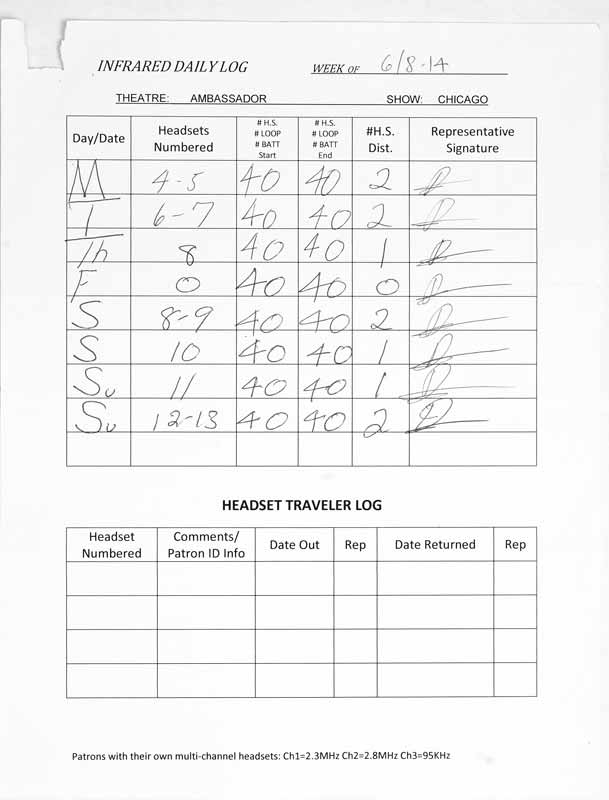 INFRARED DAILY LOG WEEK OF 6/8-14
THEATRE: AMBASSADOR SHOW: CHICAGO
Day/Date Headsets Numbered # H.S. # LOOP # BATT Start # H.S. # LOOP # BATT End #H.S. Dist. Representative Signature
M 4-5 40 40 2
T 6-7 40 40 2
Th 8 40 40 1
F 0 40 40 0
S 8-9 40 40 2
S 10 40 40 1
Su 11 40 40 1
Su 12-13 40 40 2
HEADSET TRAVELER LOG
Headset Numbered Comments/ Patron ID Info Date Out Rep Date Returned Rep
Patrons with their own multi-channel headsets: Ch1=2.3MHz Ch2=2.8MHz Ch3=95KHz